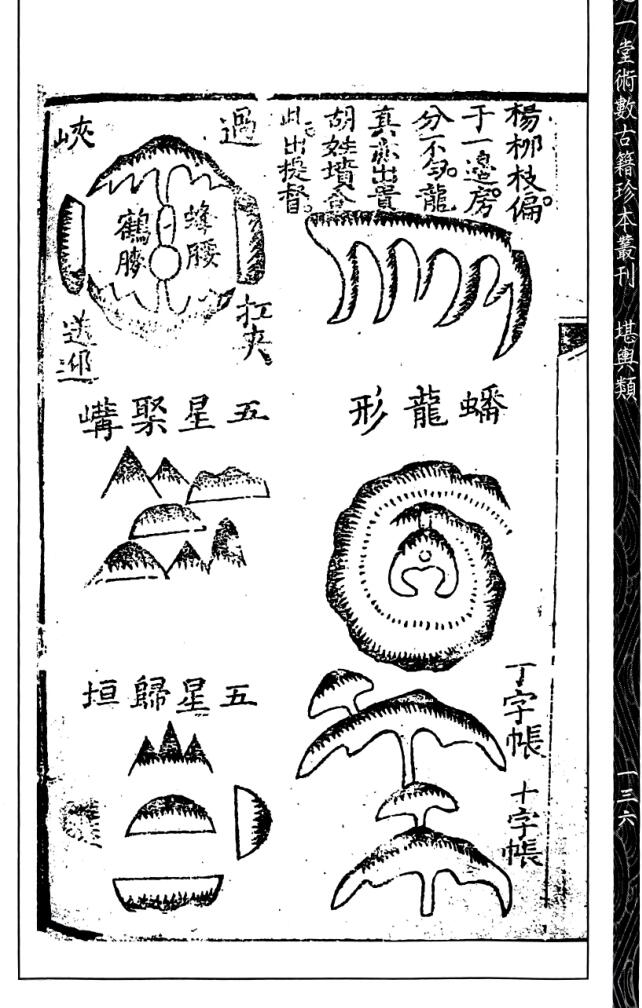 一堂術數古籍珍本叢刊 堪輿類
一三六
楊柳枝偏
于一邉房
分不勻龍
真亦出貴
胡姓墳合
此出提督
過
峽
蜂腰
鶴膝
扛夾
送迎
蟠龍形
五星聚講
丁字帳
十字帳
五星歸垣